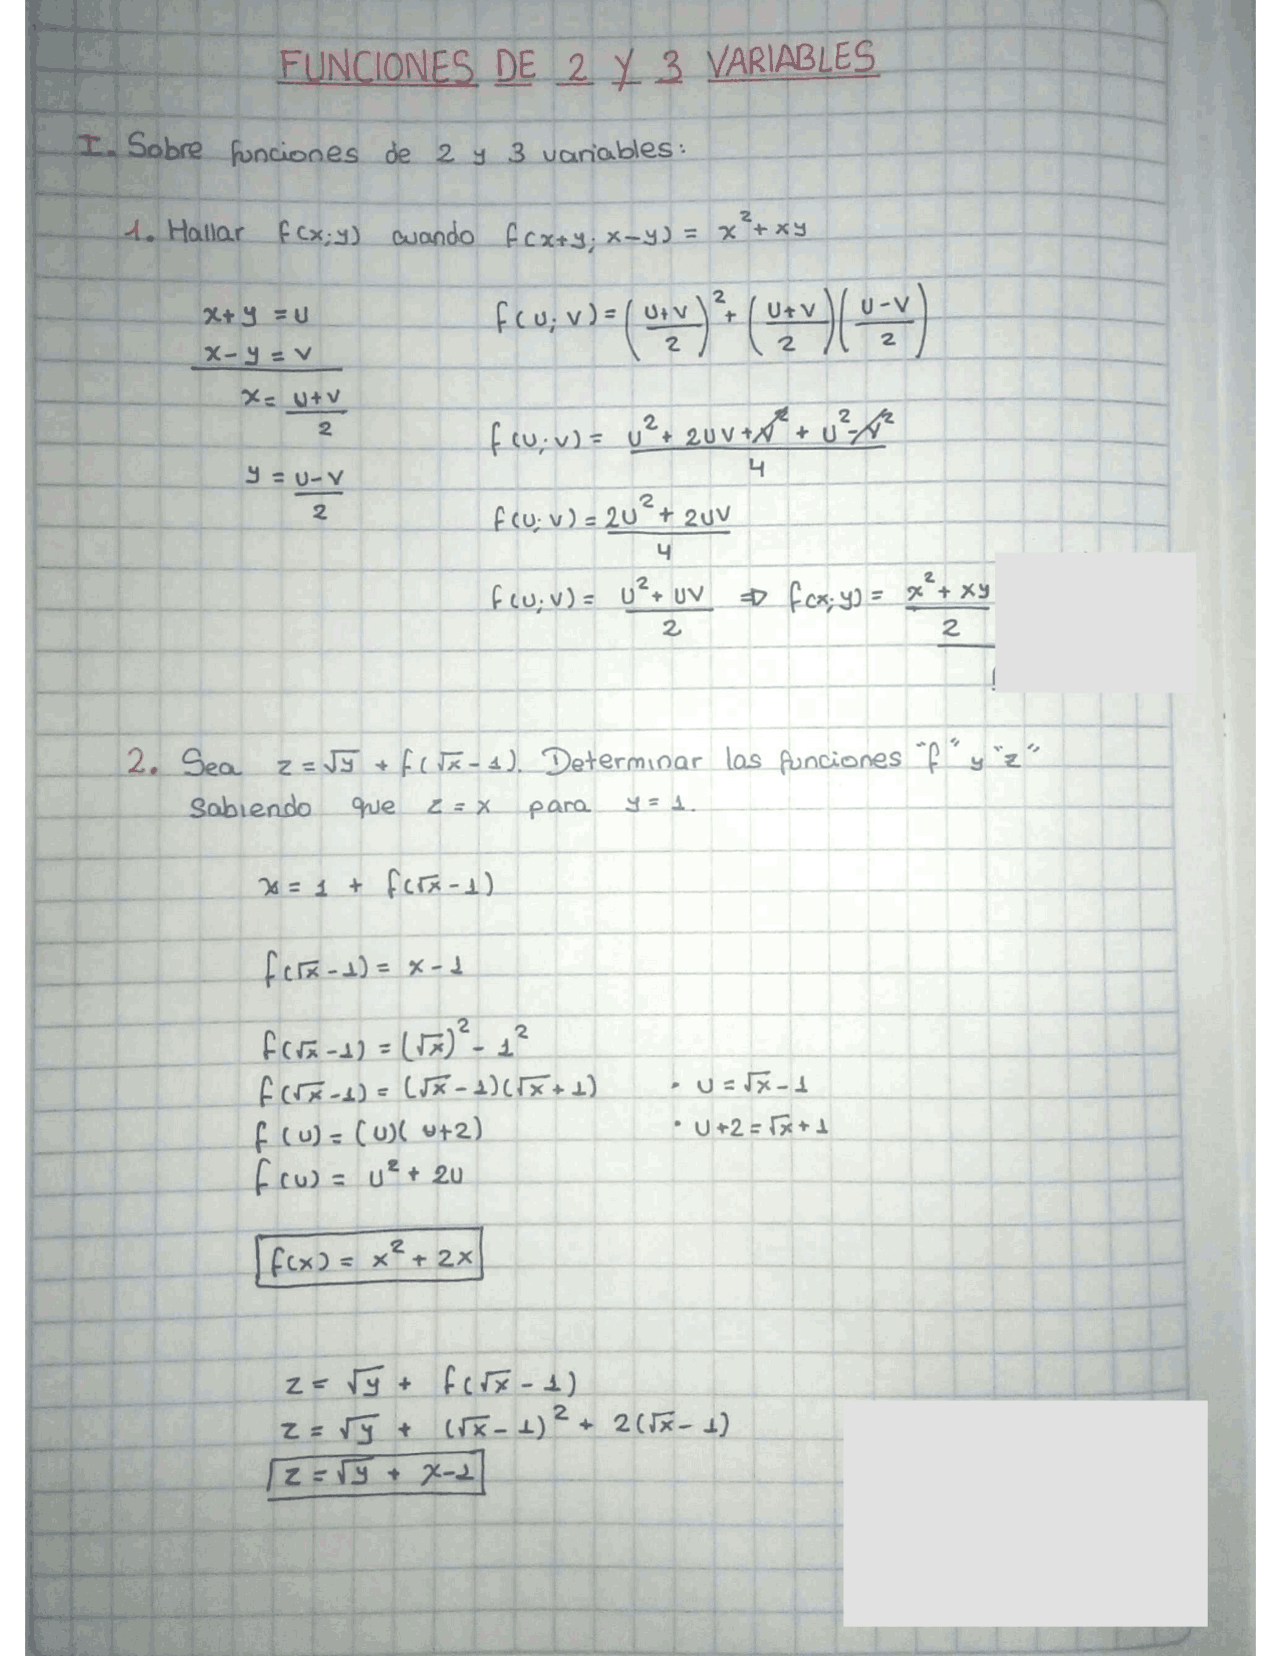 FUNCIONES DE 2 Y 3 VARIABLES
I. Sobre funciones de 2 y 3 variables:
1. Hallar f(x;y) cuando f(x+y; x-y) = x² + xy
x+y = u
x-y = v
x = (u+v)/2
y = (u-v)/2
f(u;v) = ((u+v)/2)² + ((u+v)/2)((u-v)/2)
f(u;v) = (u² + 2uv + v² + u² - v²)/4
f(u;v) = (2u² + 2uv)/4
f(u;v) = (u² + uv)/2 ⇒ f(x;y) = (x² + xy)/2
2. Sea z = √y + f(√x - 1). Determinar las funciones "f" y "z"
sabiendo que z = x para y = 1.
x = 1 + f(√x - 1)
f(√x - 1) = x - 1
f(√x - 1) = (√x)² - 1²
f(√x - 1) = (√x - 1)(√x + 1) • u = √x - 1
f(u) = (u)(u+2) • u+2 = √x + 1
f(u) = u² + 2u
f(x) = x² + 2x
z = √y + f(√x - 1)
z = √y + (√x - 1)² + 2(√x - 1)
z = √y + x - 1